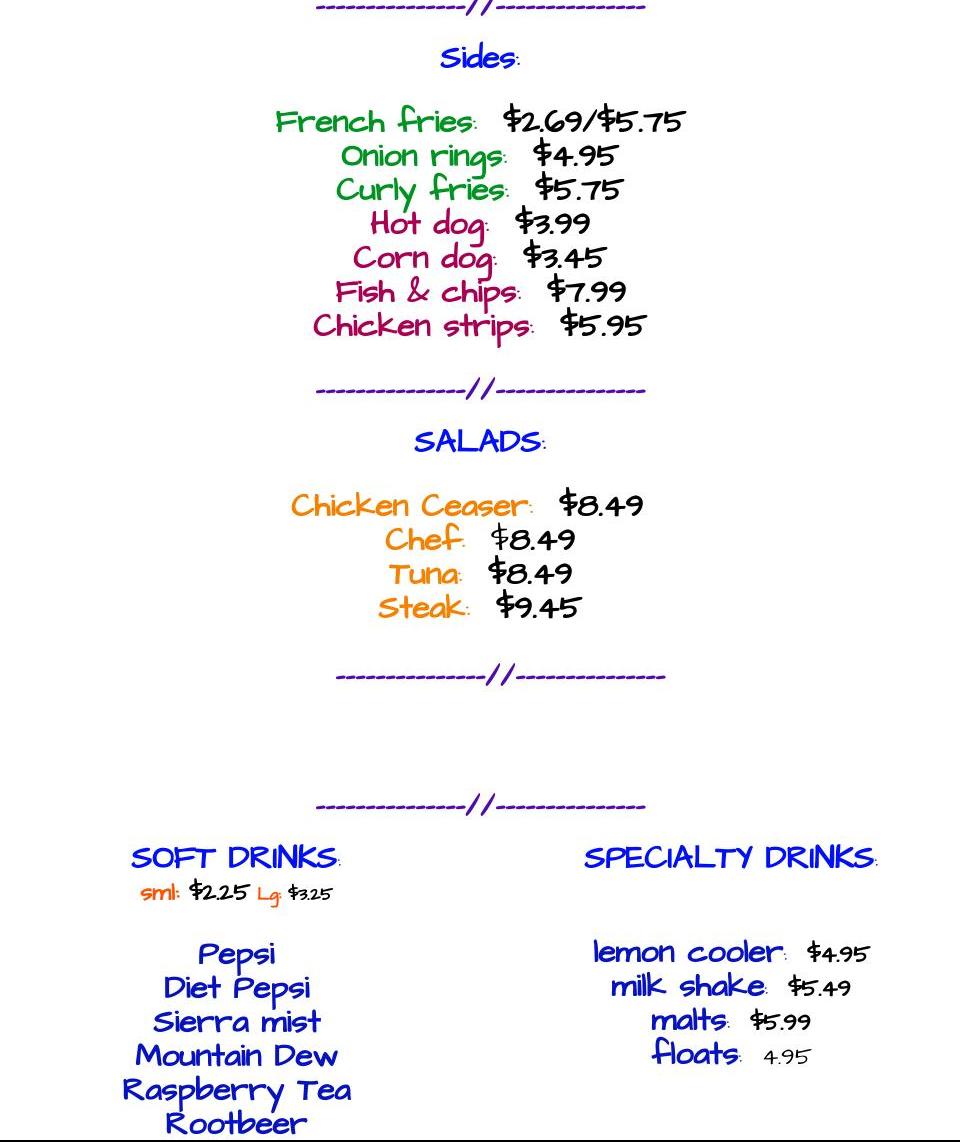 ---------------//---------------
Sides:
French fries: $2.69/$5.75
Onion rings: $4.95
Curly fries: $5.75
Hot dog: $3.99
Corn dog: $3.45
Fish & chips: $7.99
Chicken strips: $5.95
---------------//---------------
SALADS:
Chicken Ceaser: $8.49
Chef: $8.49
Tuna: $8.49
Steak: $9.45
---------------//---------------
---------------//---------------
SOFT DRINKS:
sml: $2.25 Lg: $3.25
Pepsi
Diet Pepsi
Sierra mist
Mountain Dew
Raspberry Tea
Rootbeer
SPECIALTY DRINKS:
lemon cooler: $4.95
milk shake: $5.49
malts: $5.99
floats: 4.95